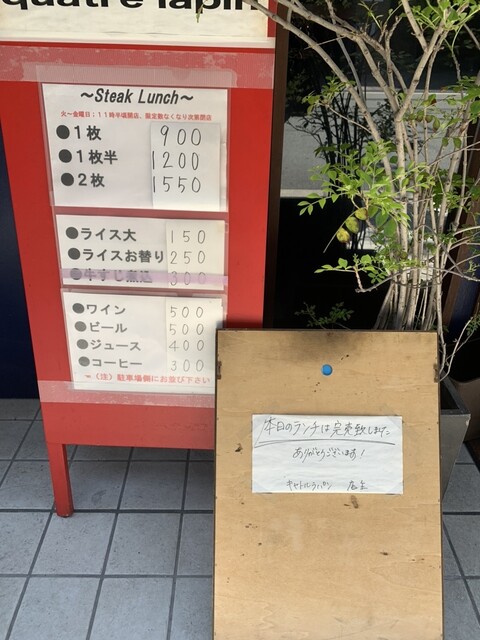 quatre lapin
~Steak Lunch~
火~金曜日；11時半頃開店、限定数なくなり次第閉店
●1枚 900
●1枚半 1200
●2枚 1550
●ライス大 150
●ライスお替り 250
●牛すじ煮込 300
●ワイン 500
●ビール 500
●ジュース 400
●コーヒー 300
(注)駐車場側にお並び下さい
本日のランチは完売致しました
ありがとうございます！
キャトルラパン 店主